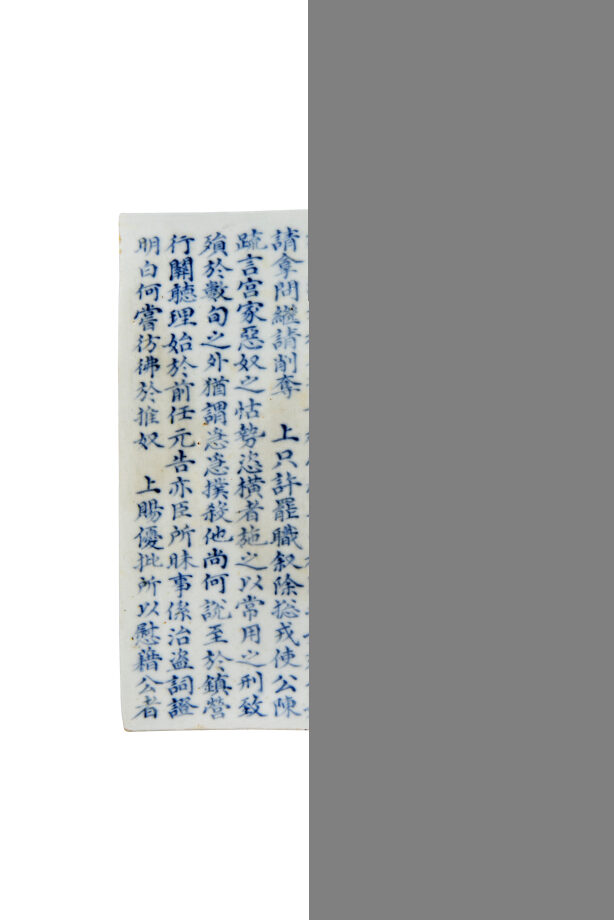 請拿問繼請削奪　上只許罷職叙除摠戎使公陳
疏言宮家惡奴之怙勢恣橫者施之以常用之刑致
殞於數旬之外猶謂忿忿撲殺他尚何說至於鎮營
行關聽理始於前任元告亦臣所昧事係治盜詞證
明白何嘗彷彿於推奴　上賜優批所以慰藉公者